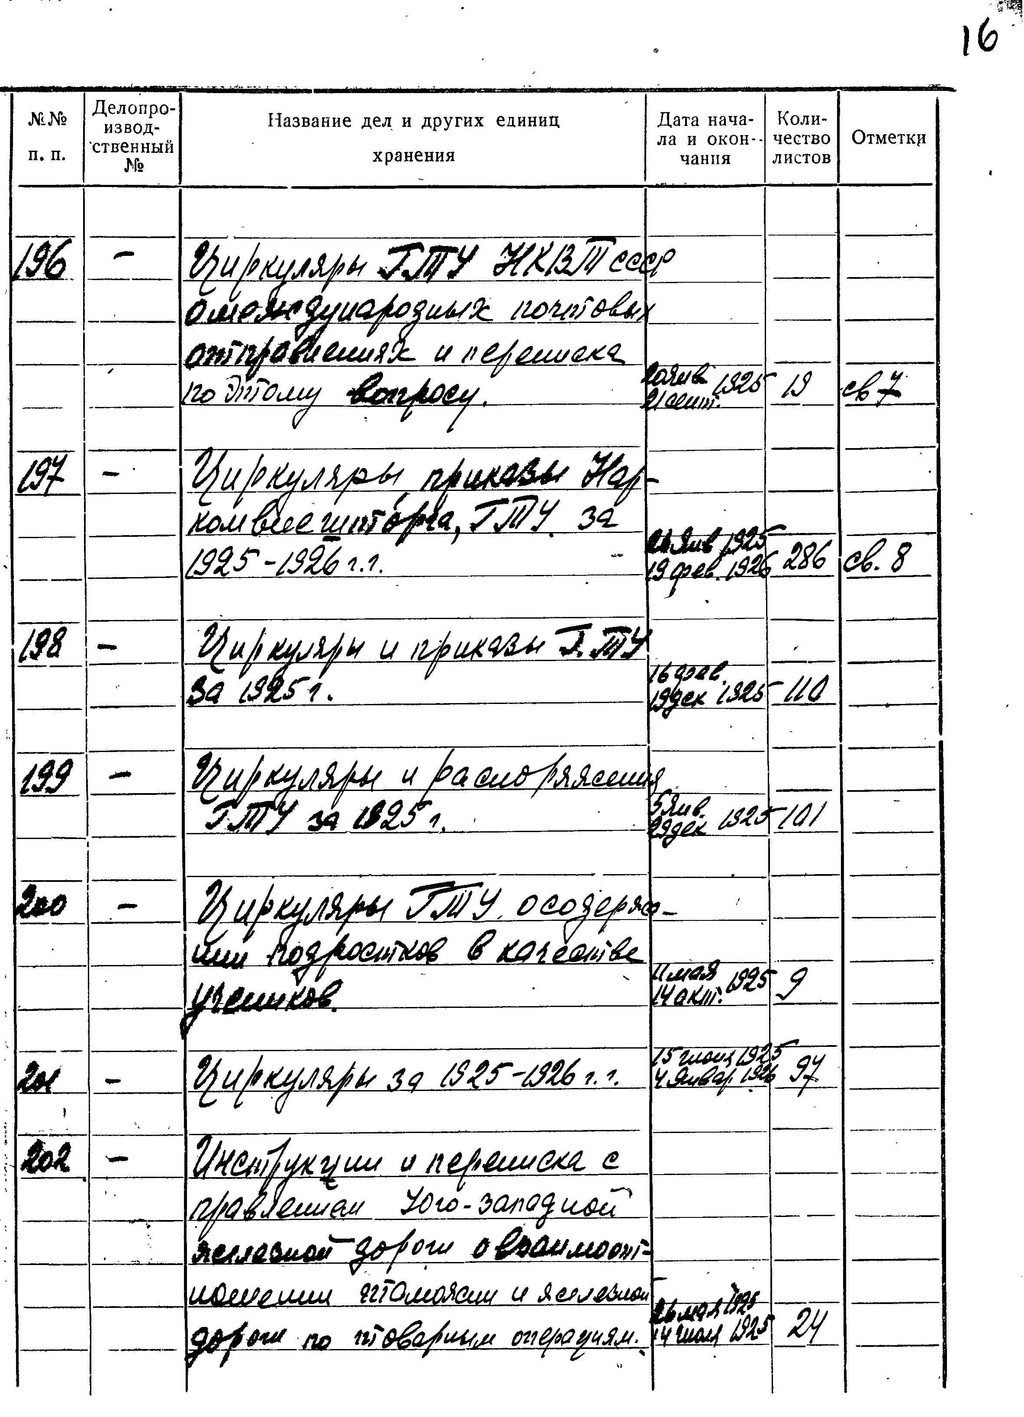 16
№№ п. п.
Делопро-
извод-
ственный
№
Название дел и других единиц
хранения
Дата нача-
ла и окон-
чания
Коли-
чество
листов
Отметки
196 – Циркуляры ГТУ НКВТ СССР
о международных почтовых
отправлениях и переписка
по этому вопросу. 20 янв. 21 сент. 1925 19 св 7
197 – Циркуляры, приказы Нар-
комвнешторга, ГТУ за
1925-1926 г.г. 26 янв 1925 19 фев. 1926 286 св. 8
198 – Циркуляры и приказы Г.ТУ
за 1925 г. 16 фев. 19 дек 1925 110
199 – Циркуляры и распоряжения
ГТУ за 1925 г. 5 янв. 29 дек 1925 101
200 – Циркуляры ГТУ о содержа-
нии подростков в качестве
учеников. 11 мая 14 окт. 1925 9
201 – Циркуляры за 1925-1926 г.г. 15 июня 1925 4 январ 1926 97
202 – Инструкции и переписка с
правлением Юго-западной
железной дороги о взаимоот-
ношении таможни и железной
дороги по товарным операциям. 26 мая 1925 14 июля 1925 24